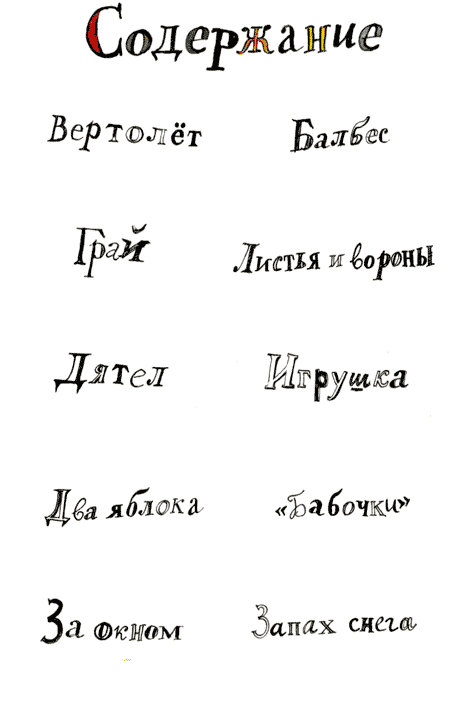 Содержание
Вертолёт
Балбес
Грай
Листья и вороны
Дятел
Игрушка
Два яблока
«Бабочки»
За окном
Запах снега